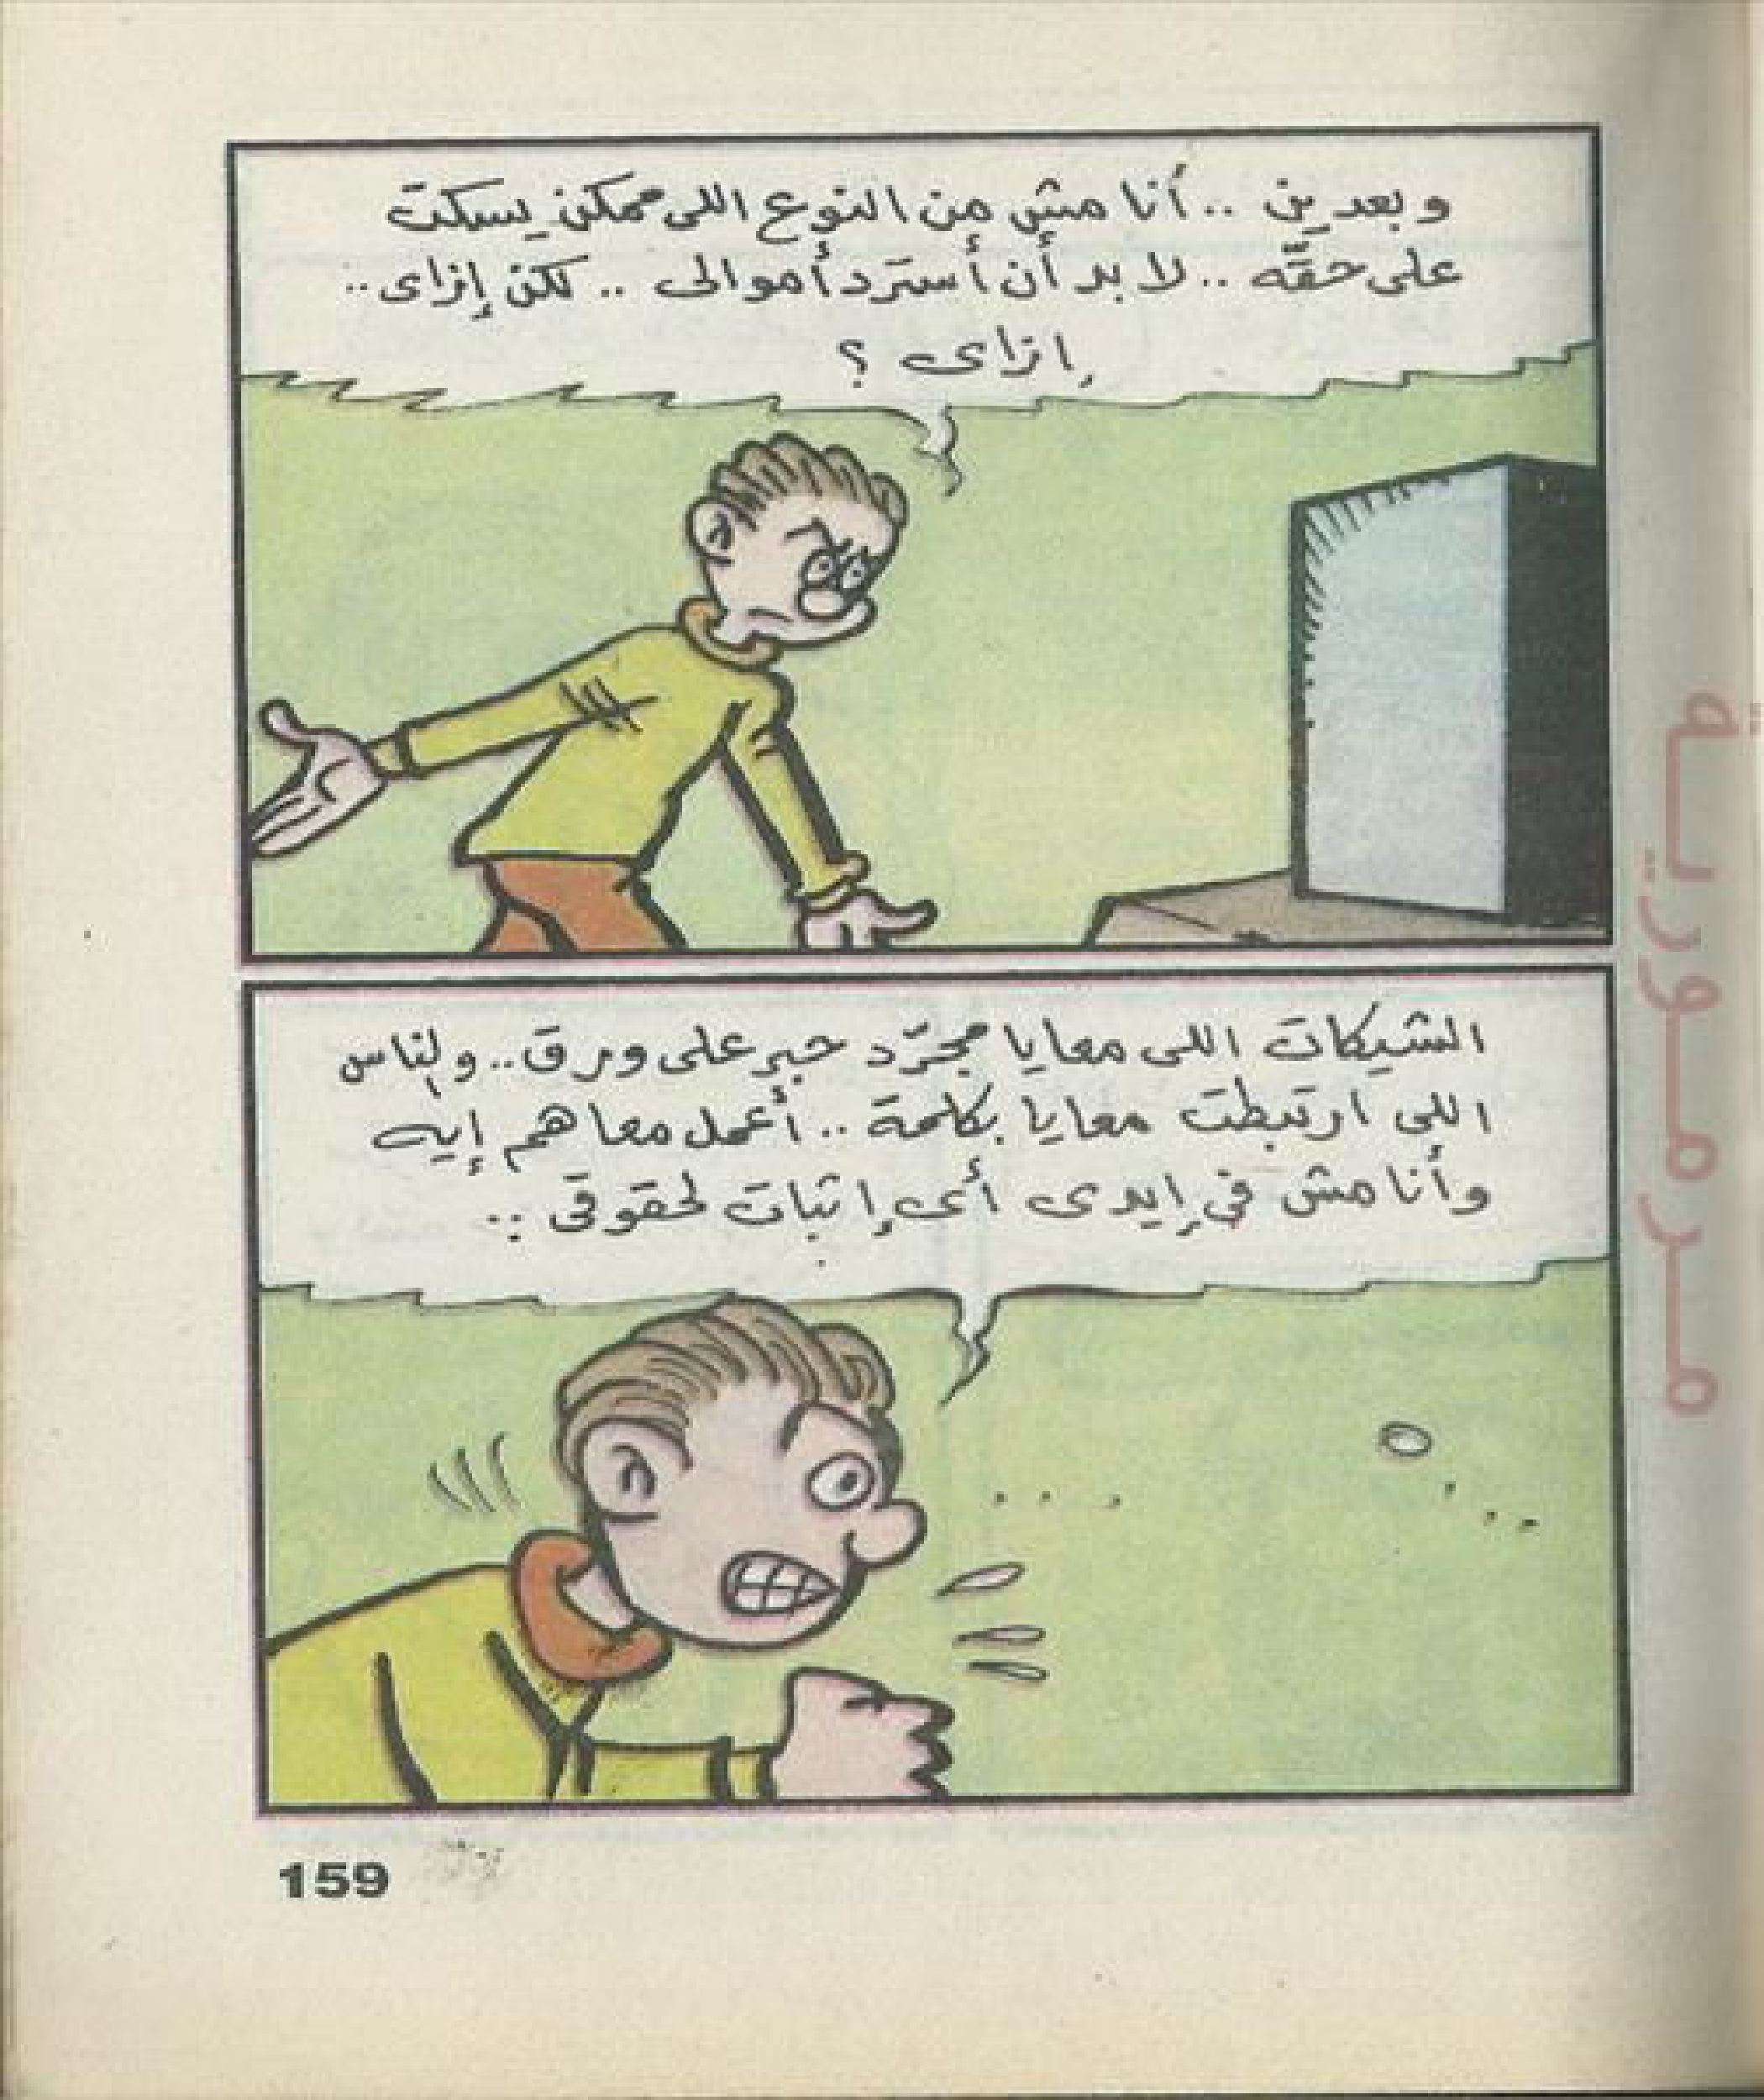 وبعدين .. أنا مش من النوع اللى ممكن يسكت
على حقّه .. لا بد أن أسترد أموالى .. لكن إزاى ..
إزاى ؟
الشيكات اللى معايا مجرّد حبر على ورق .. والناس
اللى ارتبطت معايا بكلمة .. أعمل معاهم إيه
وأنا مش فى إيدى أى إثبات لحقوقى ..
159
مرمورية